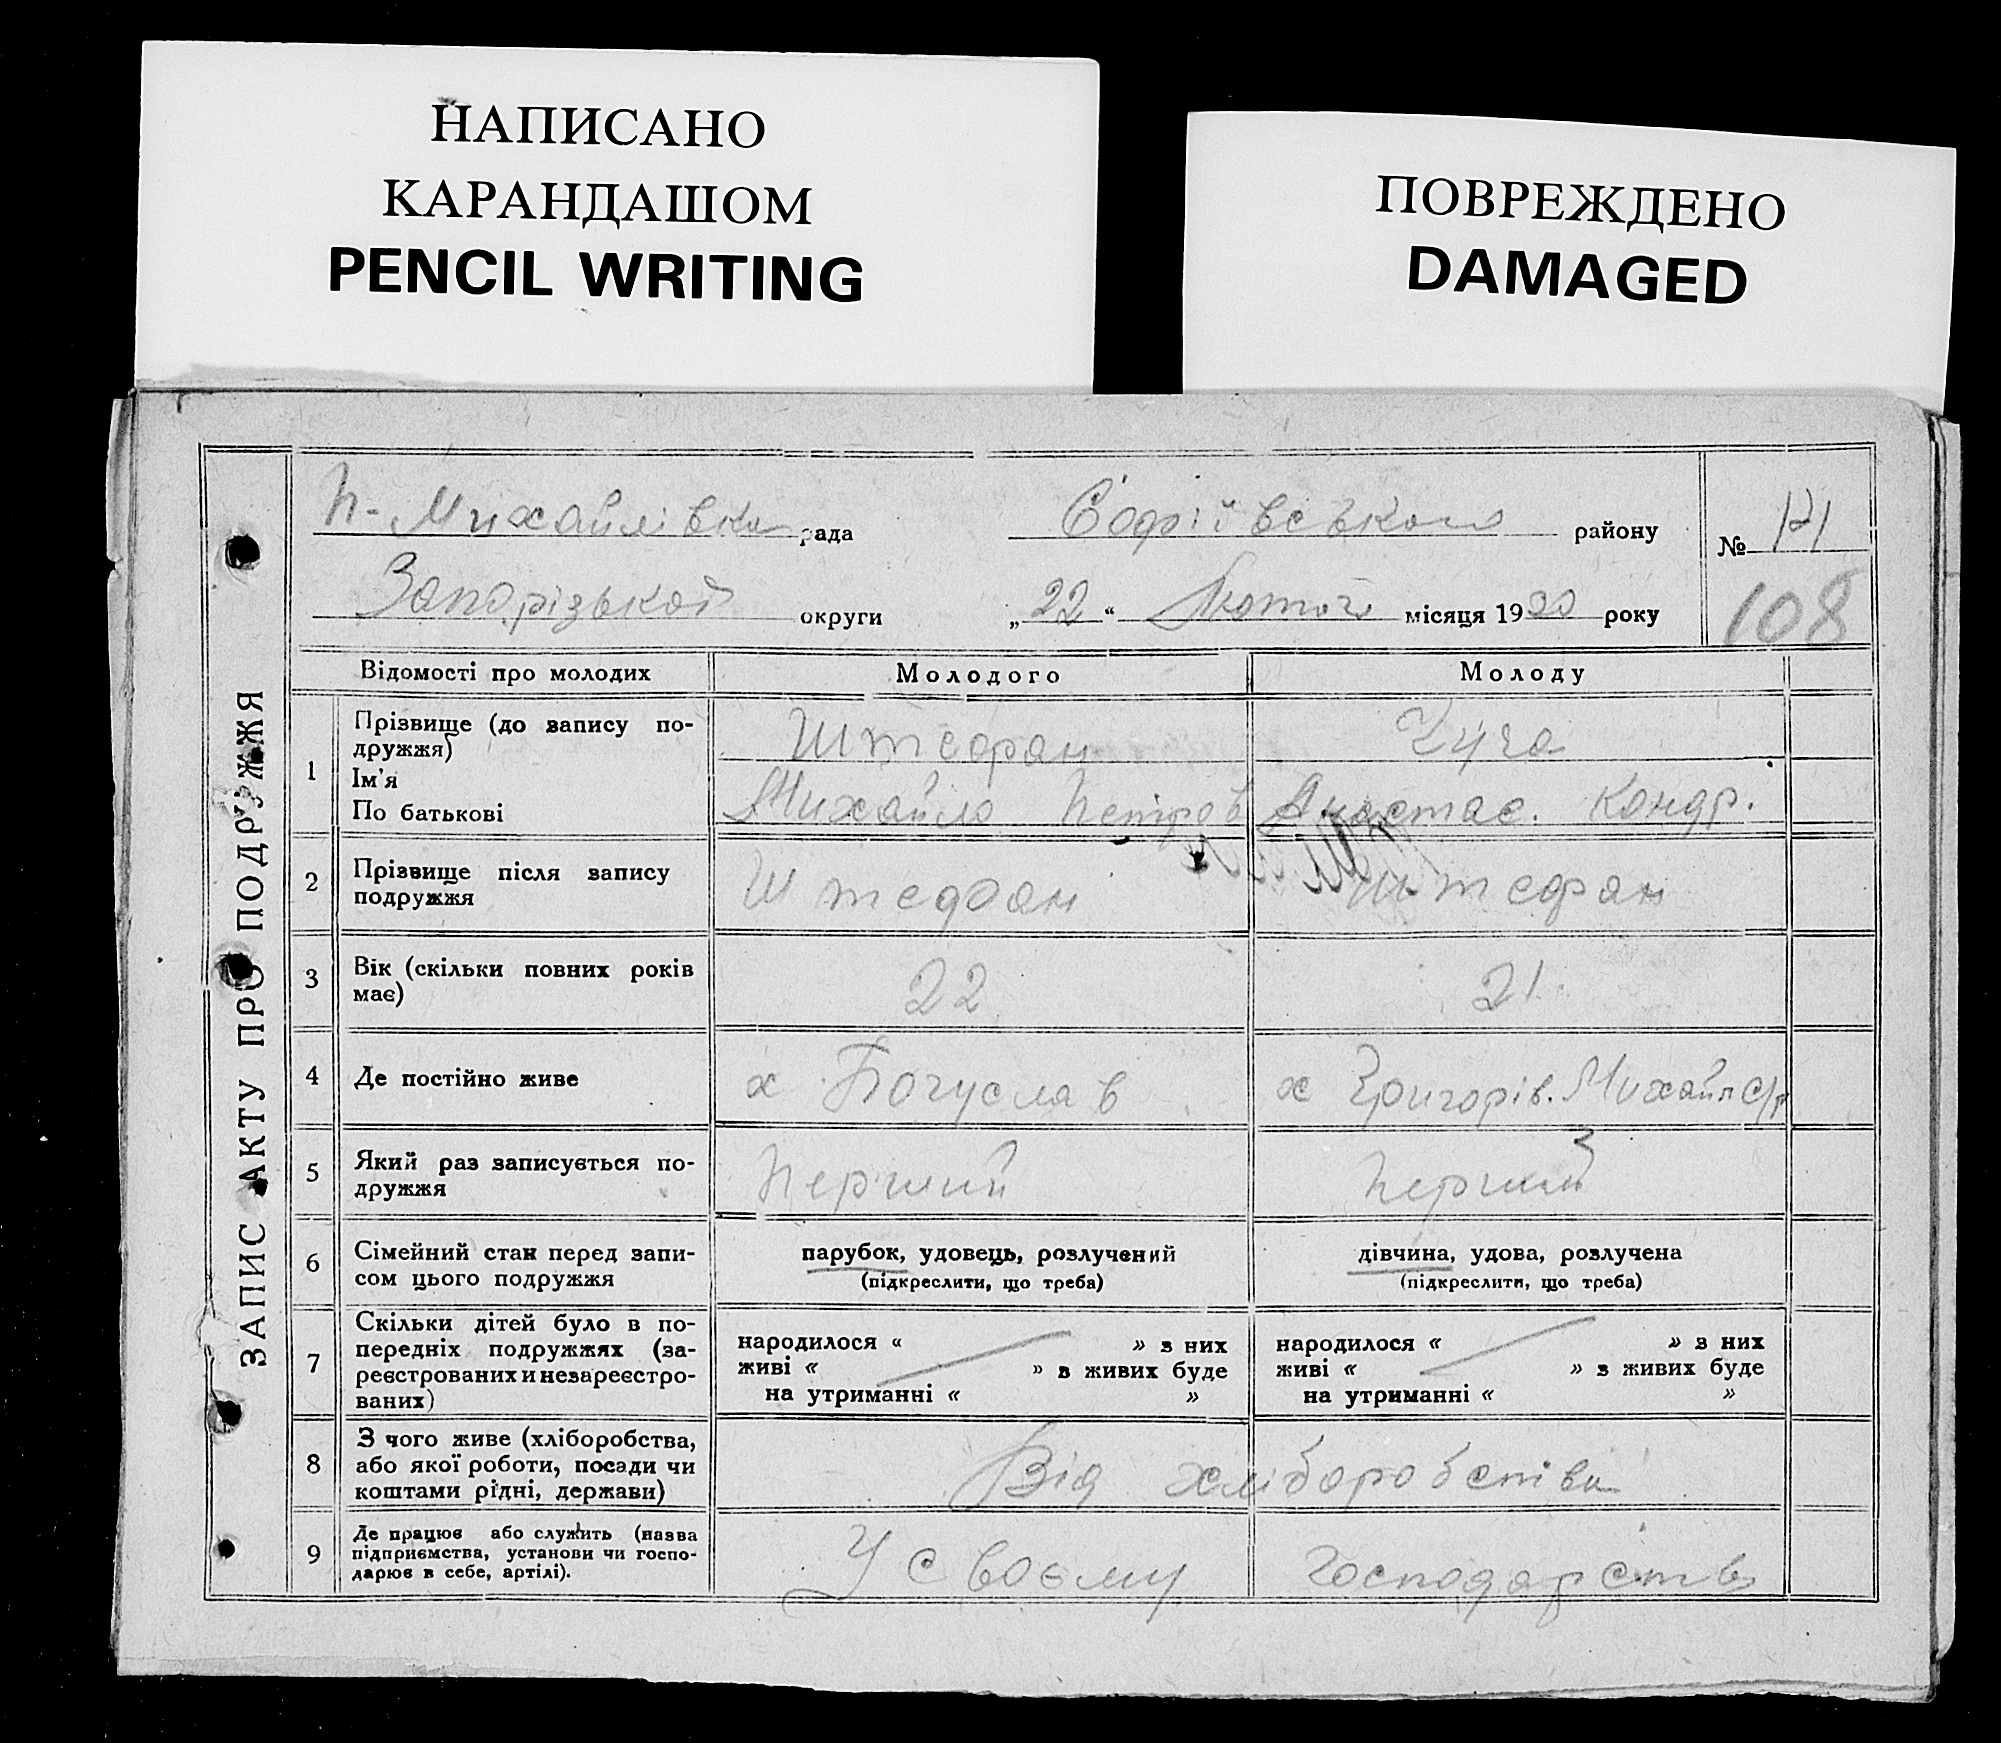 НАПИСАНО
КАРАНДАШОМ
PENCIL WRITING
ПОВРЕЖДЕНО
DAMAGED
ЗАПИС АКТУ ПРО ПОДРУЖЖЯ
Н-Михайлівка рада Софіївського району №
Запорізької округи „22“ Лютого місяця 1930 року 108
Відомості про молодих Молодого Молоду
1 Прізвище (до запису по-
дружжя) Штефан
Ім'я
По батькові Михайло Петров Анастас. Кондр.
2 Прізвище після запису
подружжя Штефан Штефан
3 Вік (скільки повних років
має) 22 21
4 Де постійно живе х Богуслав х Григорів. Михайл с/р
5 Який раз записується по-
дружжя Перший Перший
6 Сімейний стан перед запи-
сом цього подружжя парубок, удовець, розлучений дівчина, удова, розлучена
(підкреслити, що треба) (підкреслити, що треба)
7 Скільки дітей було в по-
передніх подружжях (за-
реєстрованих и незареєстро-
ваних)
народилося « » з них народилося « » з них
живі « » в живих буде живі « » з живих буде
на утриманні « » на утриманні « »
8 З чого живе (хліборобства,
або якої роботи, посади чи
коштами рідні, держави) Від хліборобства
9 Де працює або служить (назва
підприємства, установи чи госпо-
дарює в себе, артілі). У своєму господарстві